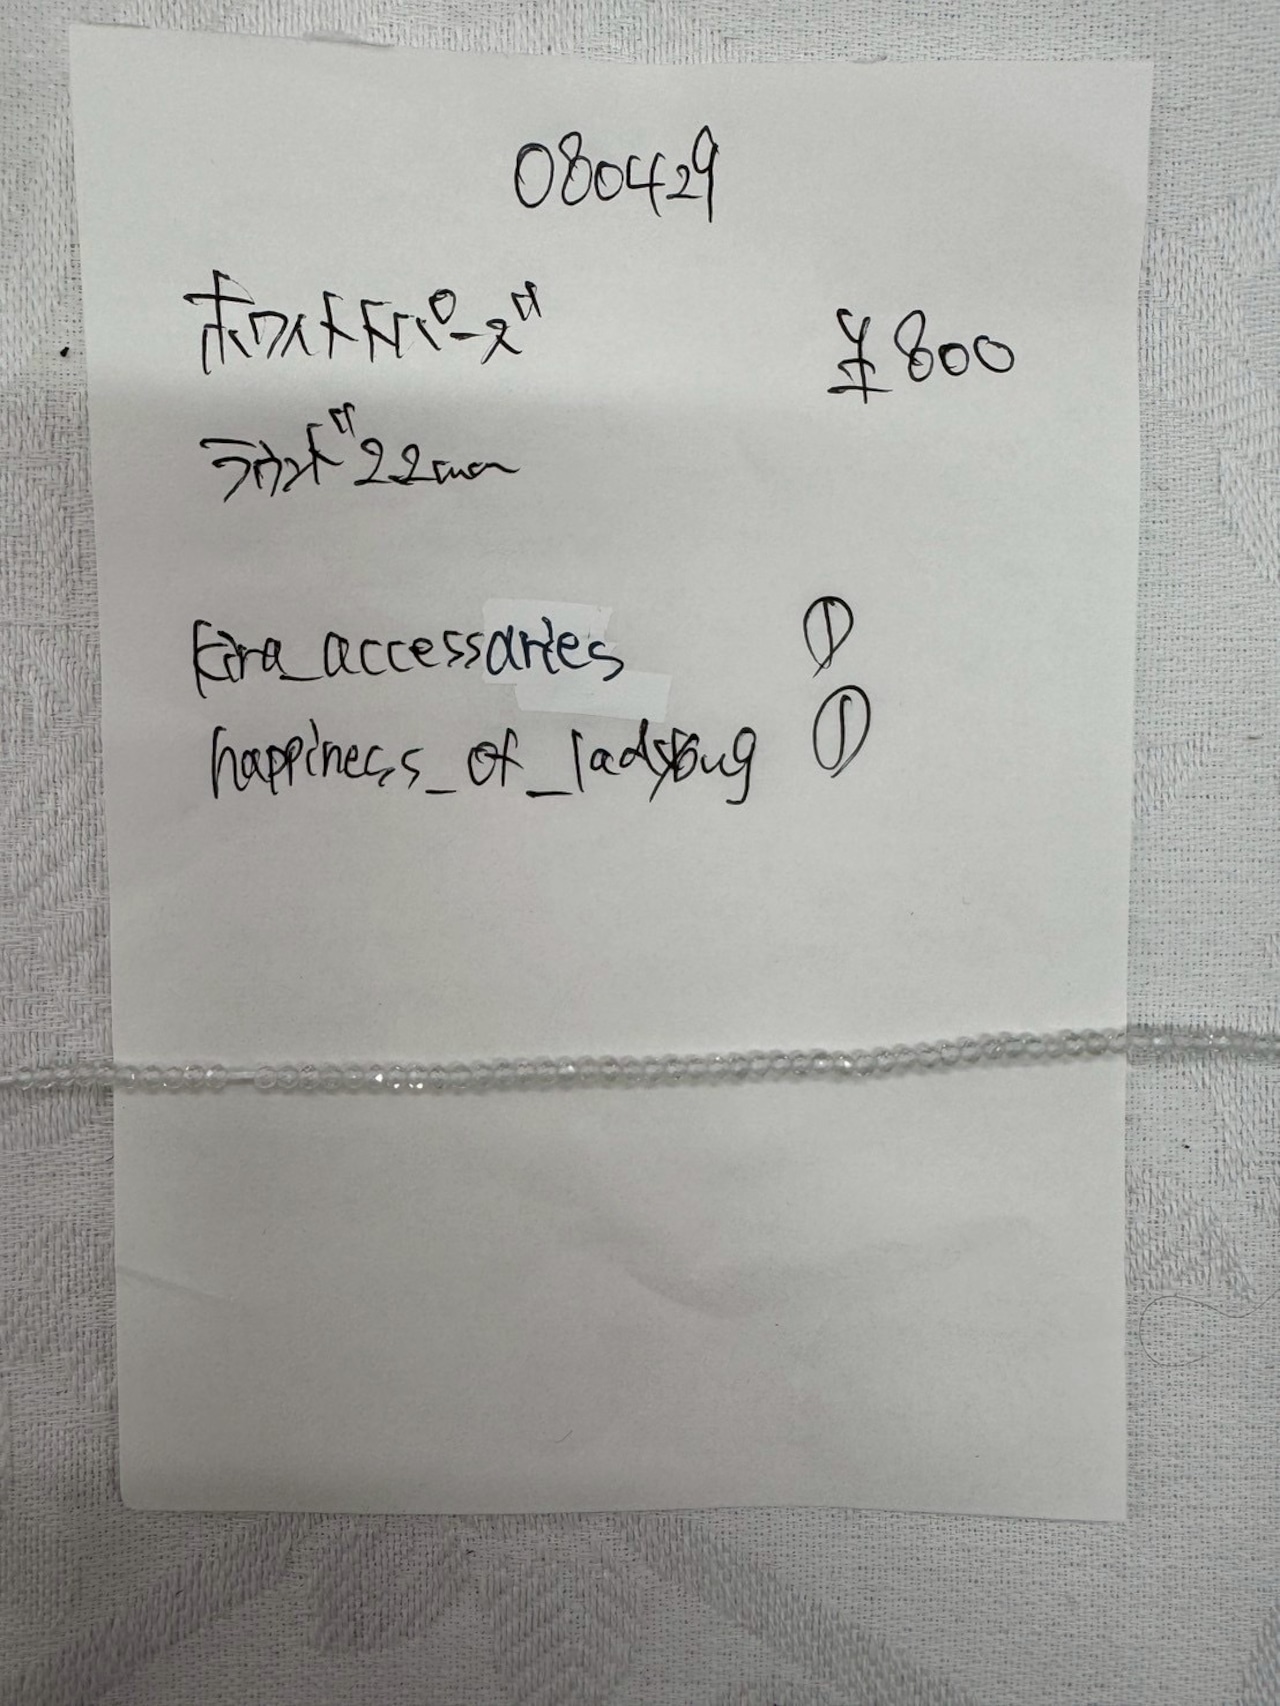 080429
ホワイトトパーズ ¥800
ラウンド 22mm
kira_accessaries ①
happiness_of_ladybug ①